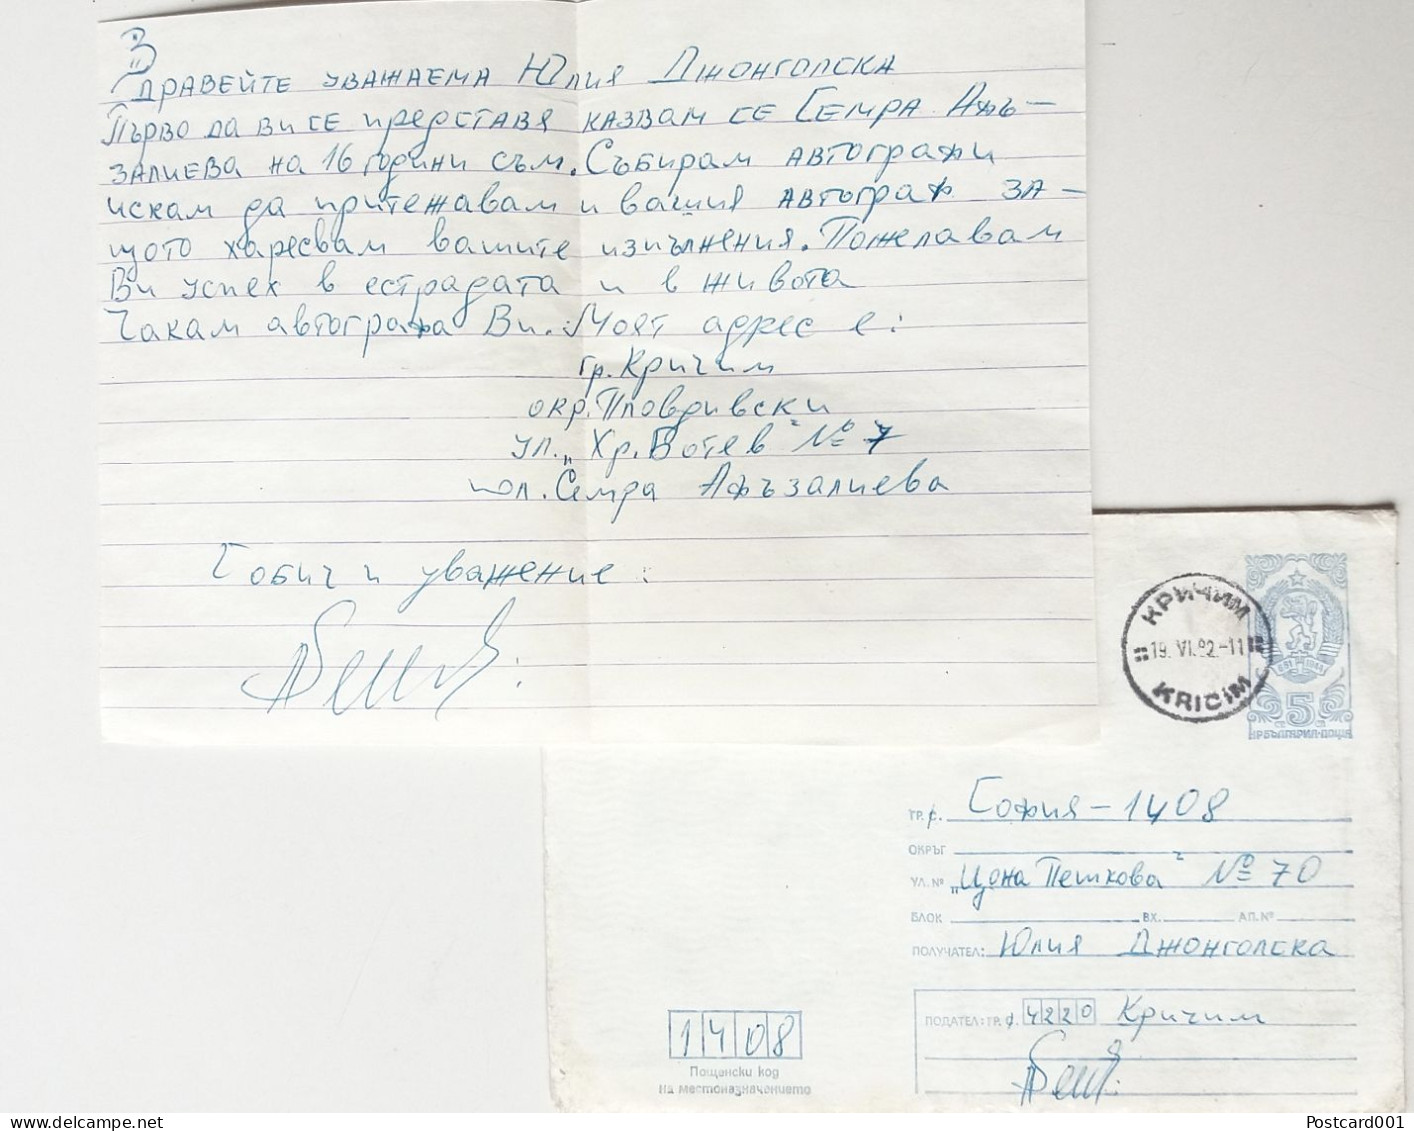 Здравейте уважаема Юлия Джонголска
Първо да ви се представя казвам се Семра Афъ-
залиева на 16 години съм. Събирам автографи
искам да притежавам и вашия автограф за-
щото харесвам вашите изпълнения. Пожелавам
Ви успех в естрадата и в живота
Чакам автографа Ви. Моят адрес е:
гр. Кричим
окр. Пловдивски
ул. „Хр. Ботев" № 7
пол. Семра Афъзалиева
С обич и уважение:
КРИЧИМ
19. VI. 82.-11
KRICIM
681 1944
5
НР БЪЛГАРИЯ·ПОЩА
ГР. С. София - 1408
ОКРЪГ
УЛ. № „Цона Пешкова" № 70
БЛОК ВХ. АП. №
ПОЛУЧАТЕЛ: Юлия Джонголска
ПОДАТЕЛ: ГР. С. 4220 Кричим
1408
Пощенски код
на местоназначението
Postcard001